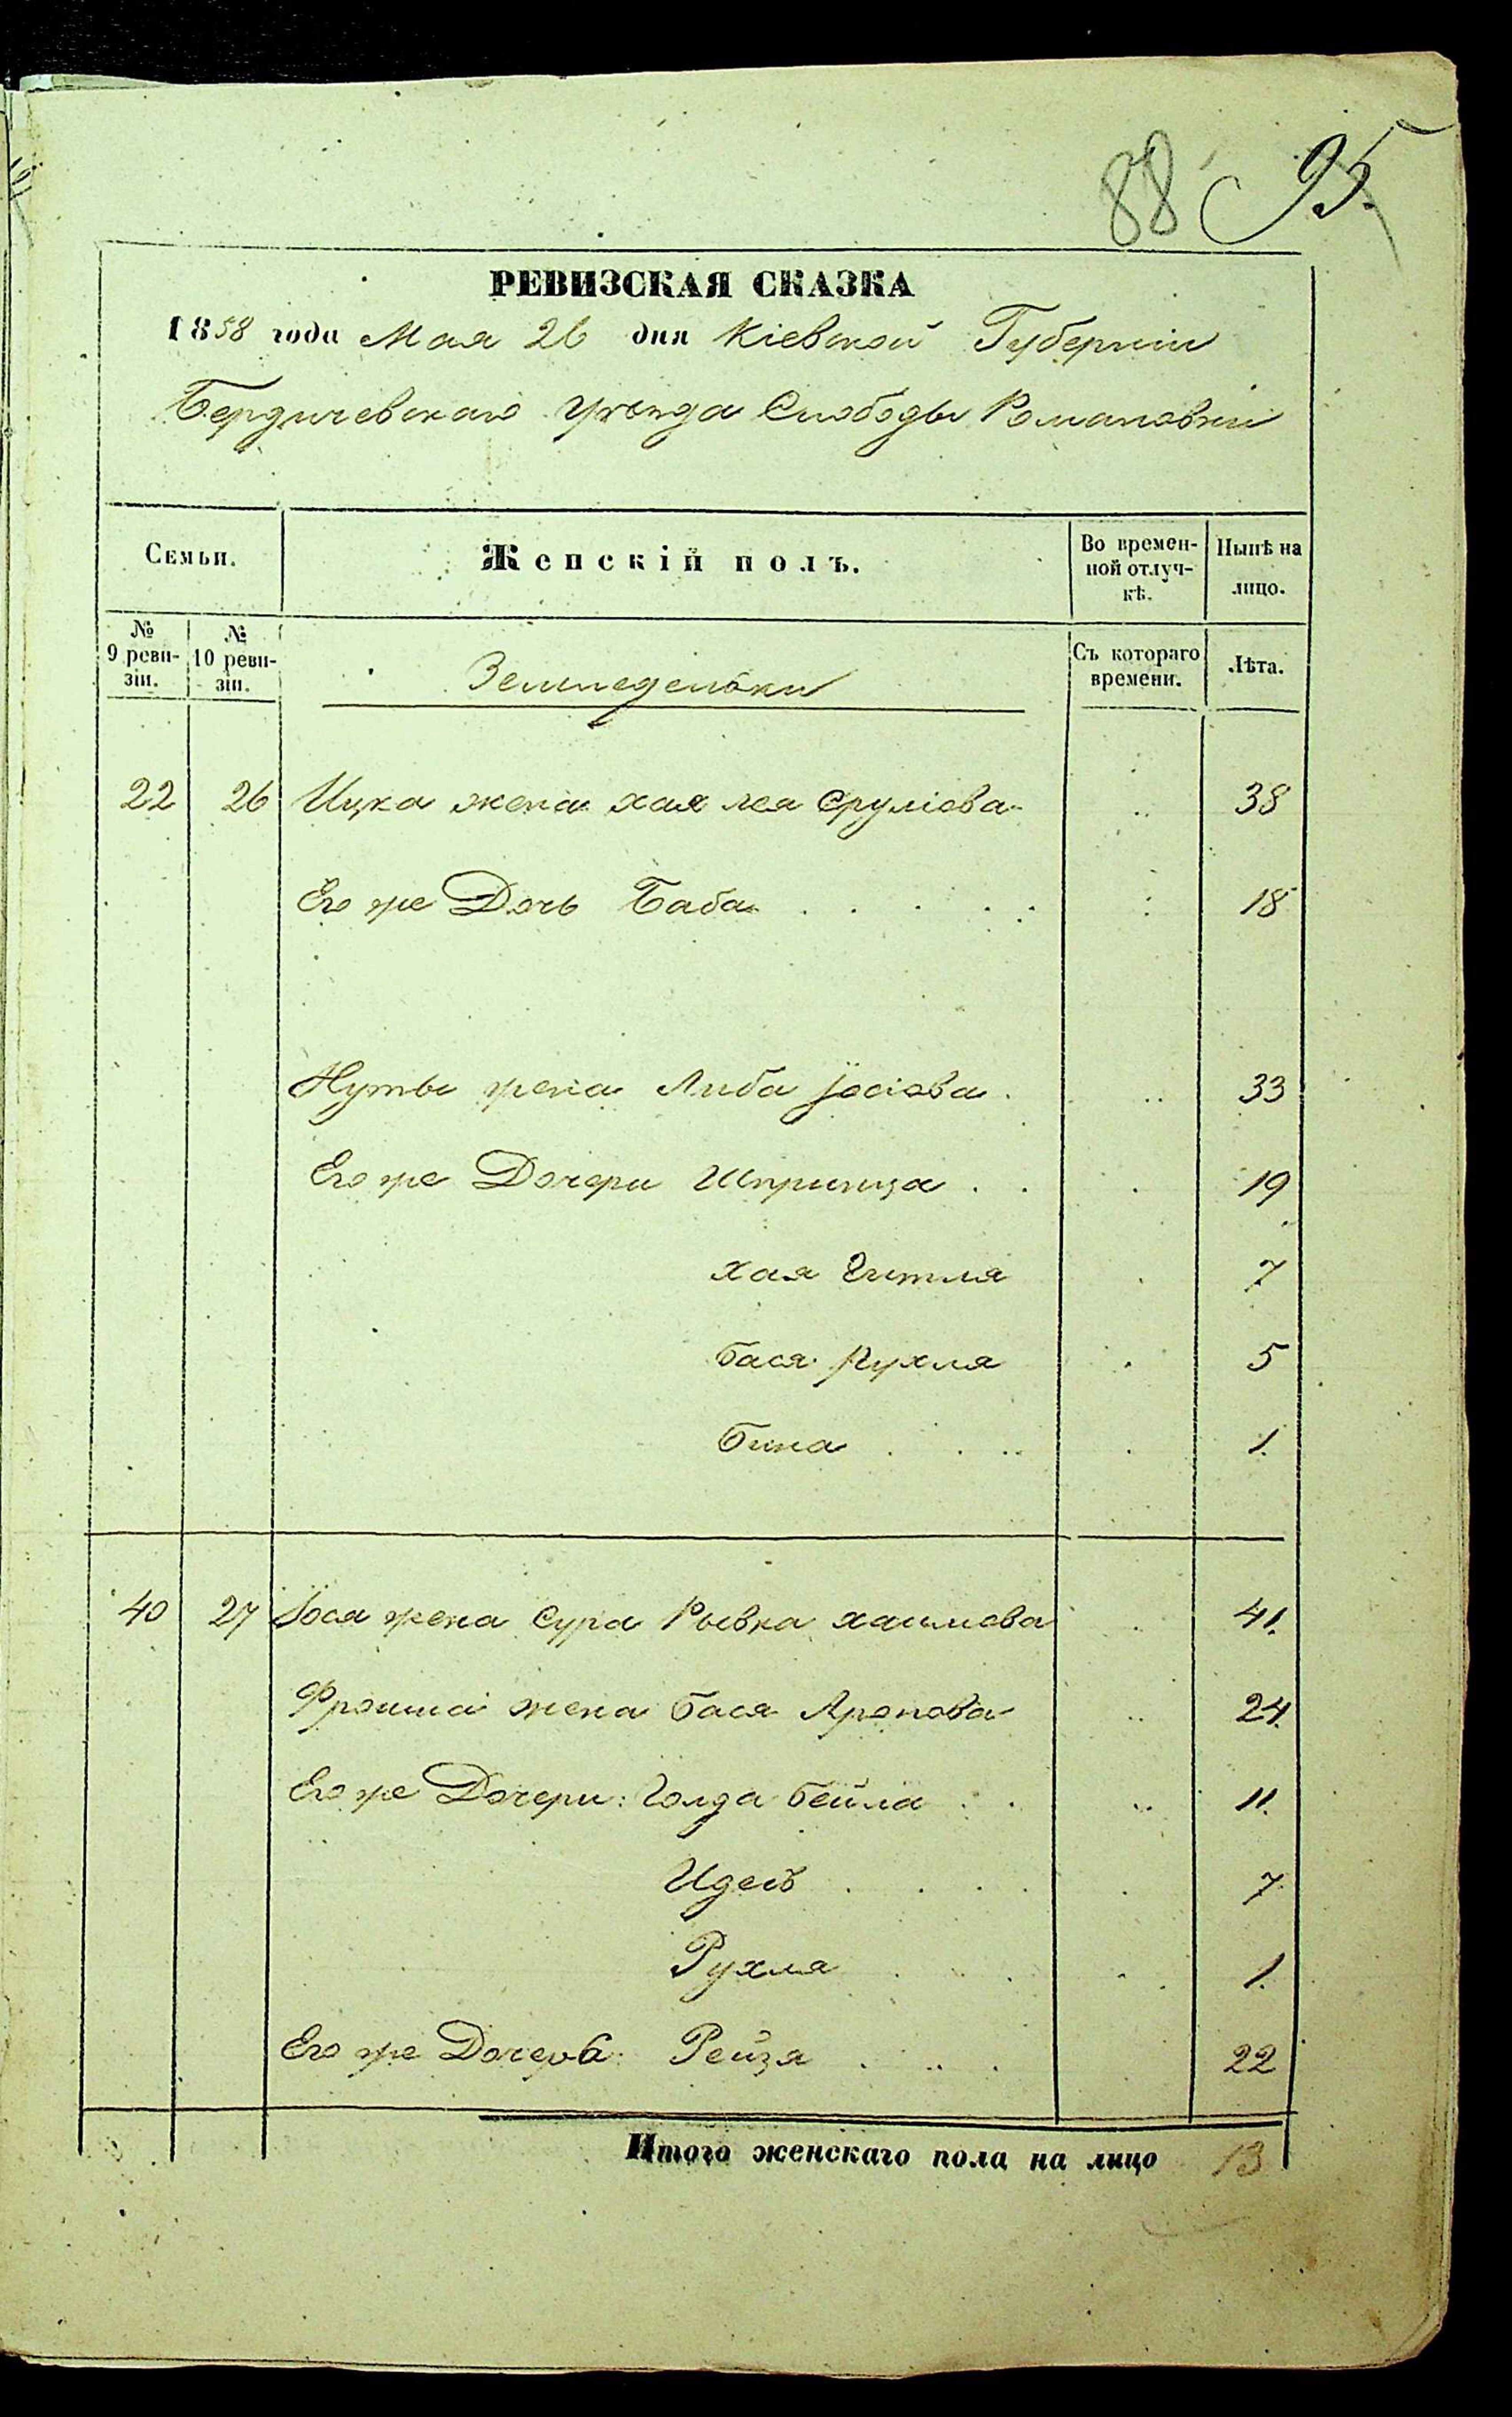 88 95.
РЕВИЗСКАЯ СКАЗКА
1858 года Мая 26 дня Кіевской Губерніи
Бердичевскаго Уѣзда Слободы Романовки
Семьи. Женскій полъ. Во времен-ной отлуч-кѣ. Нынѣ на лицо.
№ 9 реви-зіи. № 10 реви-зіи. Земледелки Съ котораго времени. Лѣта.
22 26 Ицка жена хая лея Сруліова 38
Его же Дочь Баба 18
Нуты жена Либа Іосіова 33
Его же Дочери Шпринца 19
хая Гитля 7
бася Рухля 5
бина 1
40 27 Іося жена Сура Рывка хаимова 41
Фроима жена бася Аронова 24
Его же Дочери: Голда бейла 11
Идес 7
Рухля 1
Его же Дочерь Рейзя 22
Итого женскаго пола на лицо 13